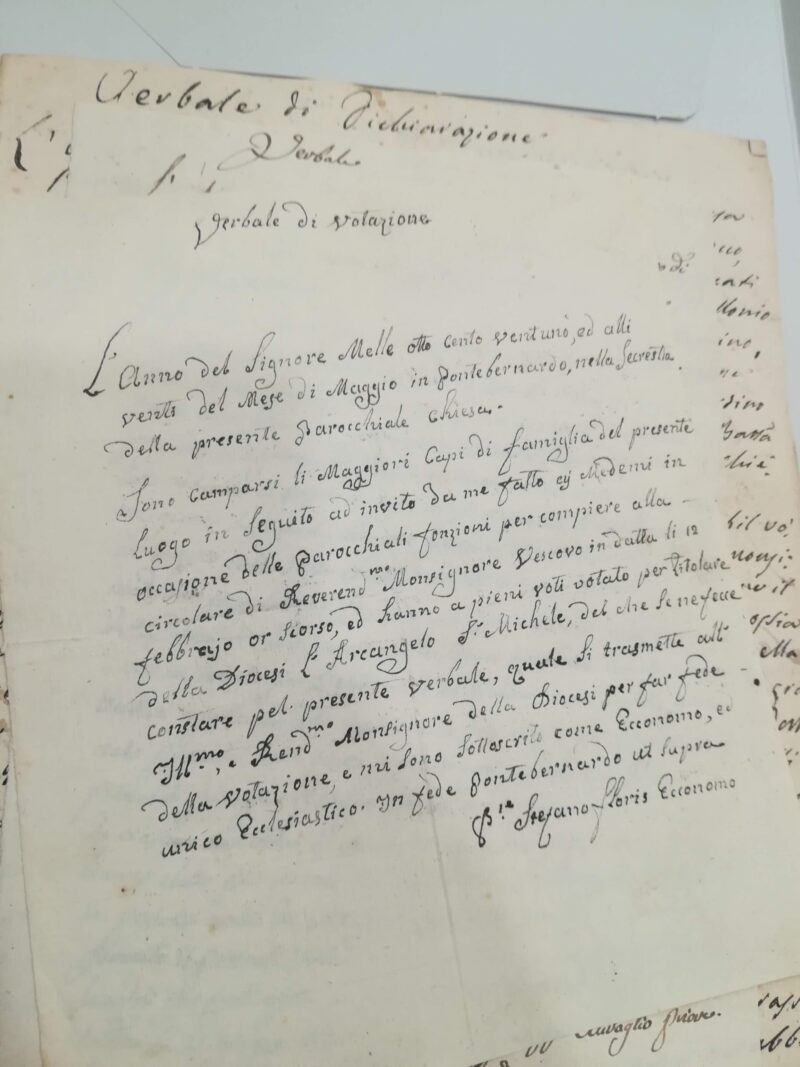 Verbale di Dichiarazione
Verbale
Verbale di Votazione
L'Anno del Signore Melle otto cento ventuno, ed alli
venti del Mese di Maggio in Pontebernardo, nella Secrestia
della presente Parocchiale Chiesa.
Sono Camparsi li Maggiori Capi di famiglia del presente
Luogo in Seguito ad invito da me fatto ej Medemi in
occasione delle Parocchiali fonzioni per compiere alla
circolare di Reverend.mo Monsignore Vescovo in datta li 12
febbrajo or scorso, ed hanno a pieni voti votato per titolare
della Diocesi L'Arcangelo S. Michele, del che se ne fece
Constare pel presente verbale, quale si trasmette all'
Ill.mo, e Rend.mo Monsignore della Diocesi per far fede
della votazione, e mi sono sottoscritto come Economo, ed
unico Ecclesiastico. In fede Pontebernardo ut supra
Stefano Floris Economo